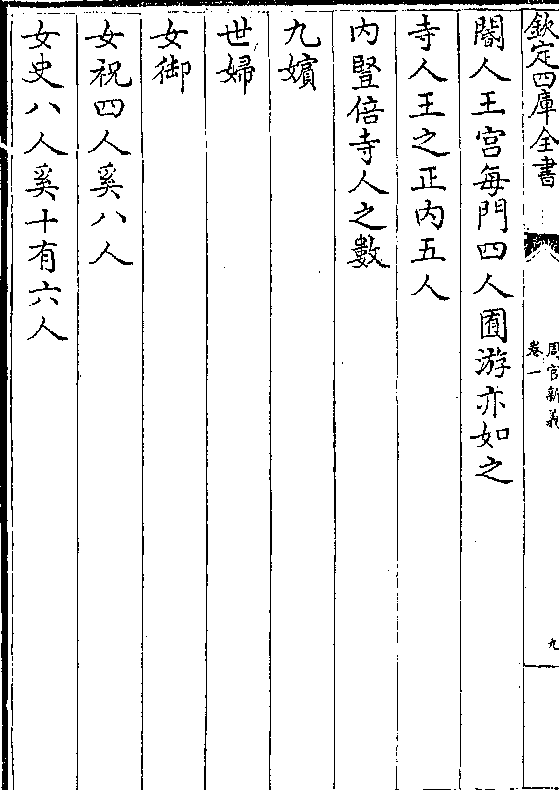 欽定四庫全書
周官新義
卷一
九
閽人王宫每門四人囿游亦如之
寺人王之正内五人
内豎倍寺人之數
九嬪
世婦
女御
女祝四人奚八人
女史八人奚十有六人